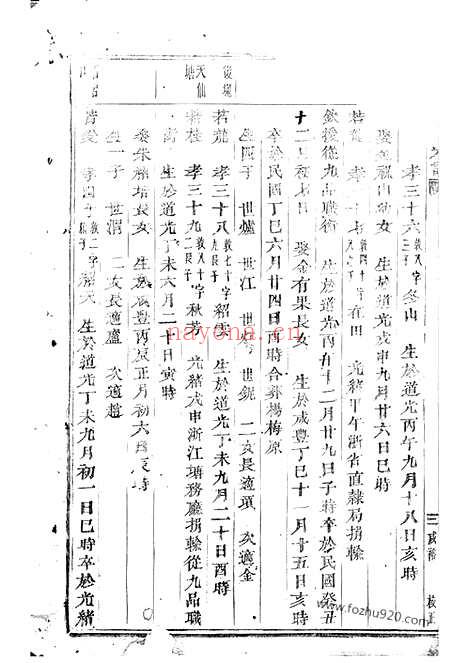 孝三十六 教八字 三子 冬山 生於道光丙午九月十八日亥時
娶 福山幼女 生於道光戊申九月廿六日巳時
若 孝三十七 教四十字 在田 光緒甲午浙省直隸局捐輸
欽授從九品職銜 生於道光丙午十二月廿九日子時卒於民國癸丑
十二月初七日 娶金有果長女 生於咸豐丁巳十一月廿五日亥時
卒於民國丁巳六月廿四日酉時合葬楊梅原
生四子 世爐 世江 世 世鋭 二女長適項 次適金
後塊
若龍 孝三十八 教七十字 長子 紹 生於道光丁未九月二十日酉時
天仙塘
若桂 孝三十九 教八十字 二子 秋芳 光緒戊申浙江塘務廳捐輸從九品職
銜 生於道光丁未六月二十日寅時
娶朱 培長女 生於咸豐丙辰正月初六日辰時
生一子 世潤 二女長適盧 次適趙
孝四十 教二字 長子 紹 生於道光丁未九月初一日巳時卒於光緒
nayona.cn
www.fozhu920.com